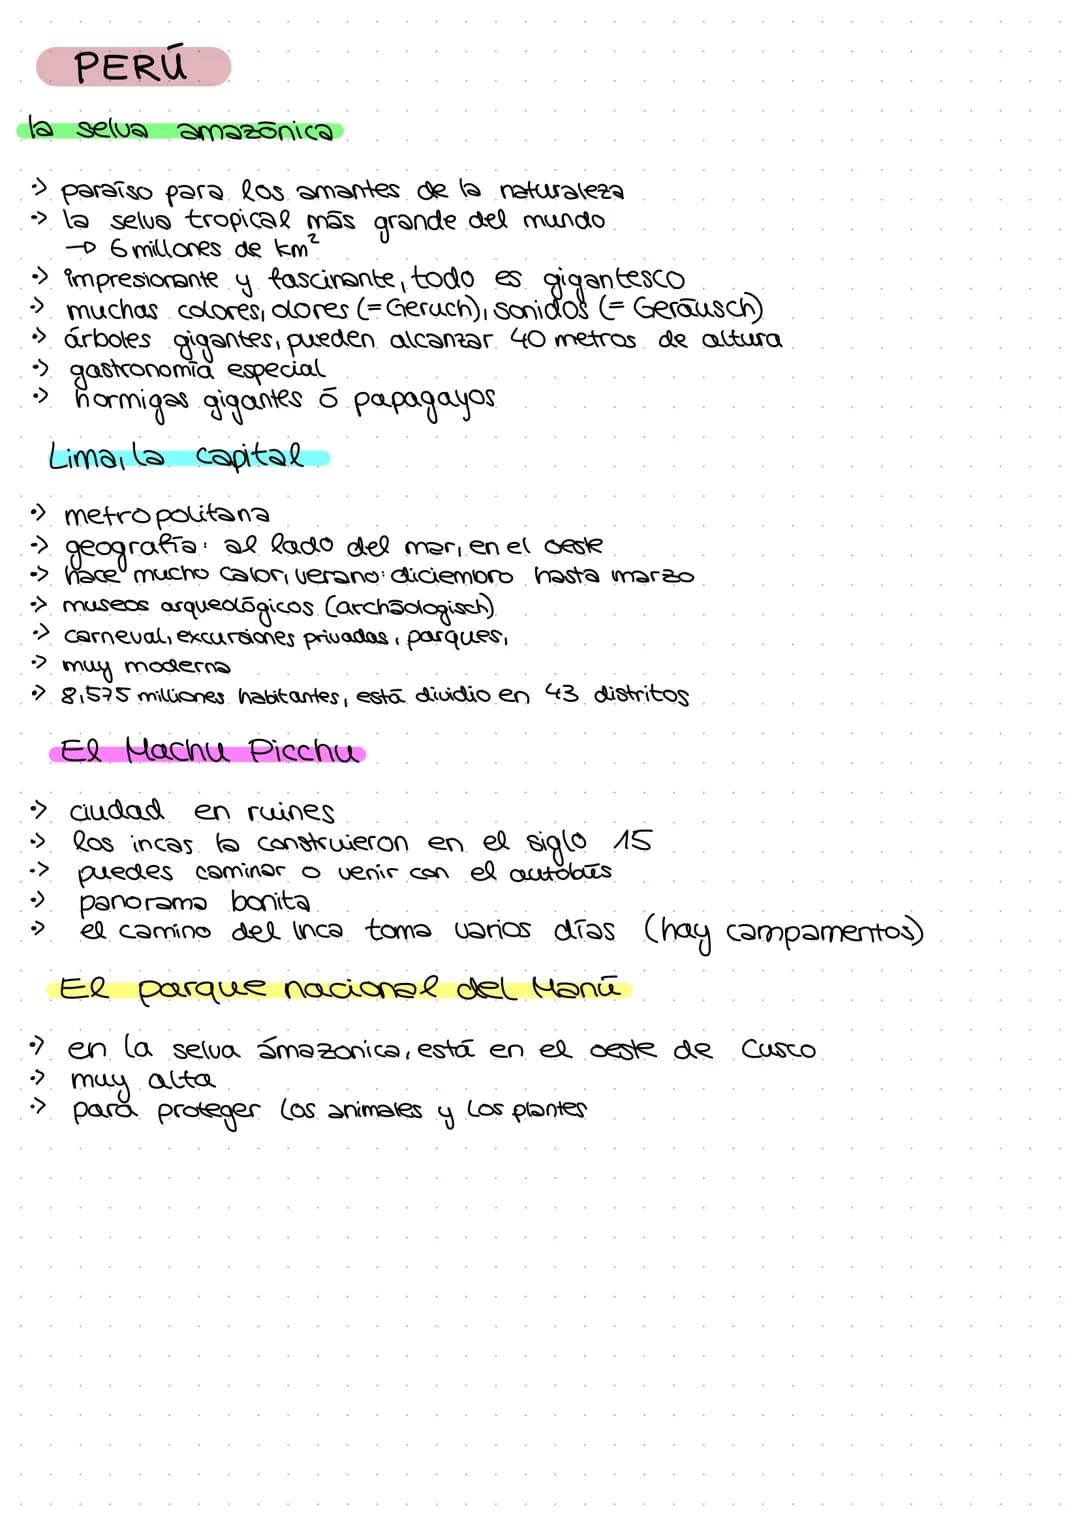 PERÚ
la selva amazónica
·> paraíso para los amantes de la naturaleza
·> la selva tropical más grande del mundo
→ 6 millones de km²
·> impresionante y fascinante, todo es gigantesco
·> muchas colores, olores (= Geruch), sonidos (= Geräusch)
·> árboles gigantes, pueden alcanzar 40 metros de altura
·> gastronomía especial
·> hormigas gigantes ó papagayos
Lima, la capital
·> metropolitana
·> geografía: al lado del mar, en el oeste
·> hace mucho calor, verano: diciembro hasta marzo
·> museos arqueológicos (archäologisch)
·> carneval, excursiones privadas, parques,
·> muy moderna
·> 8,575 milliones habitantes, está dividio en 43 distritos
El Machu Picchu
·> ciudad en ruines
·> los incas la construieron en el siglo 15
·> puedes caminar o venir con el autobús
·> panorama bonita
·> el camino del Inca toma varios días (hay campamentos)
El parque nacional del Manú
·> en la selva ámazonica, está en el oeste de Cusco
·> muy alta
·> para proteger los animales y los plantes